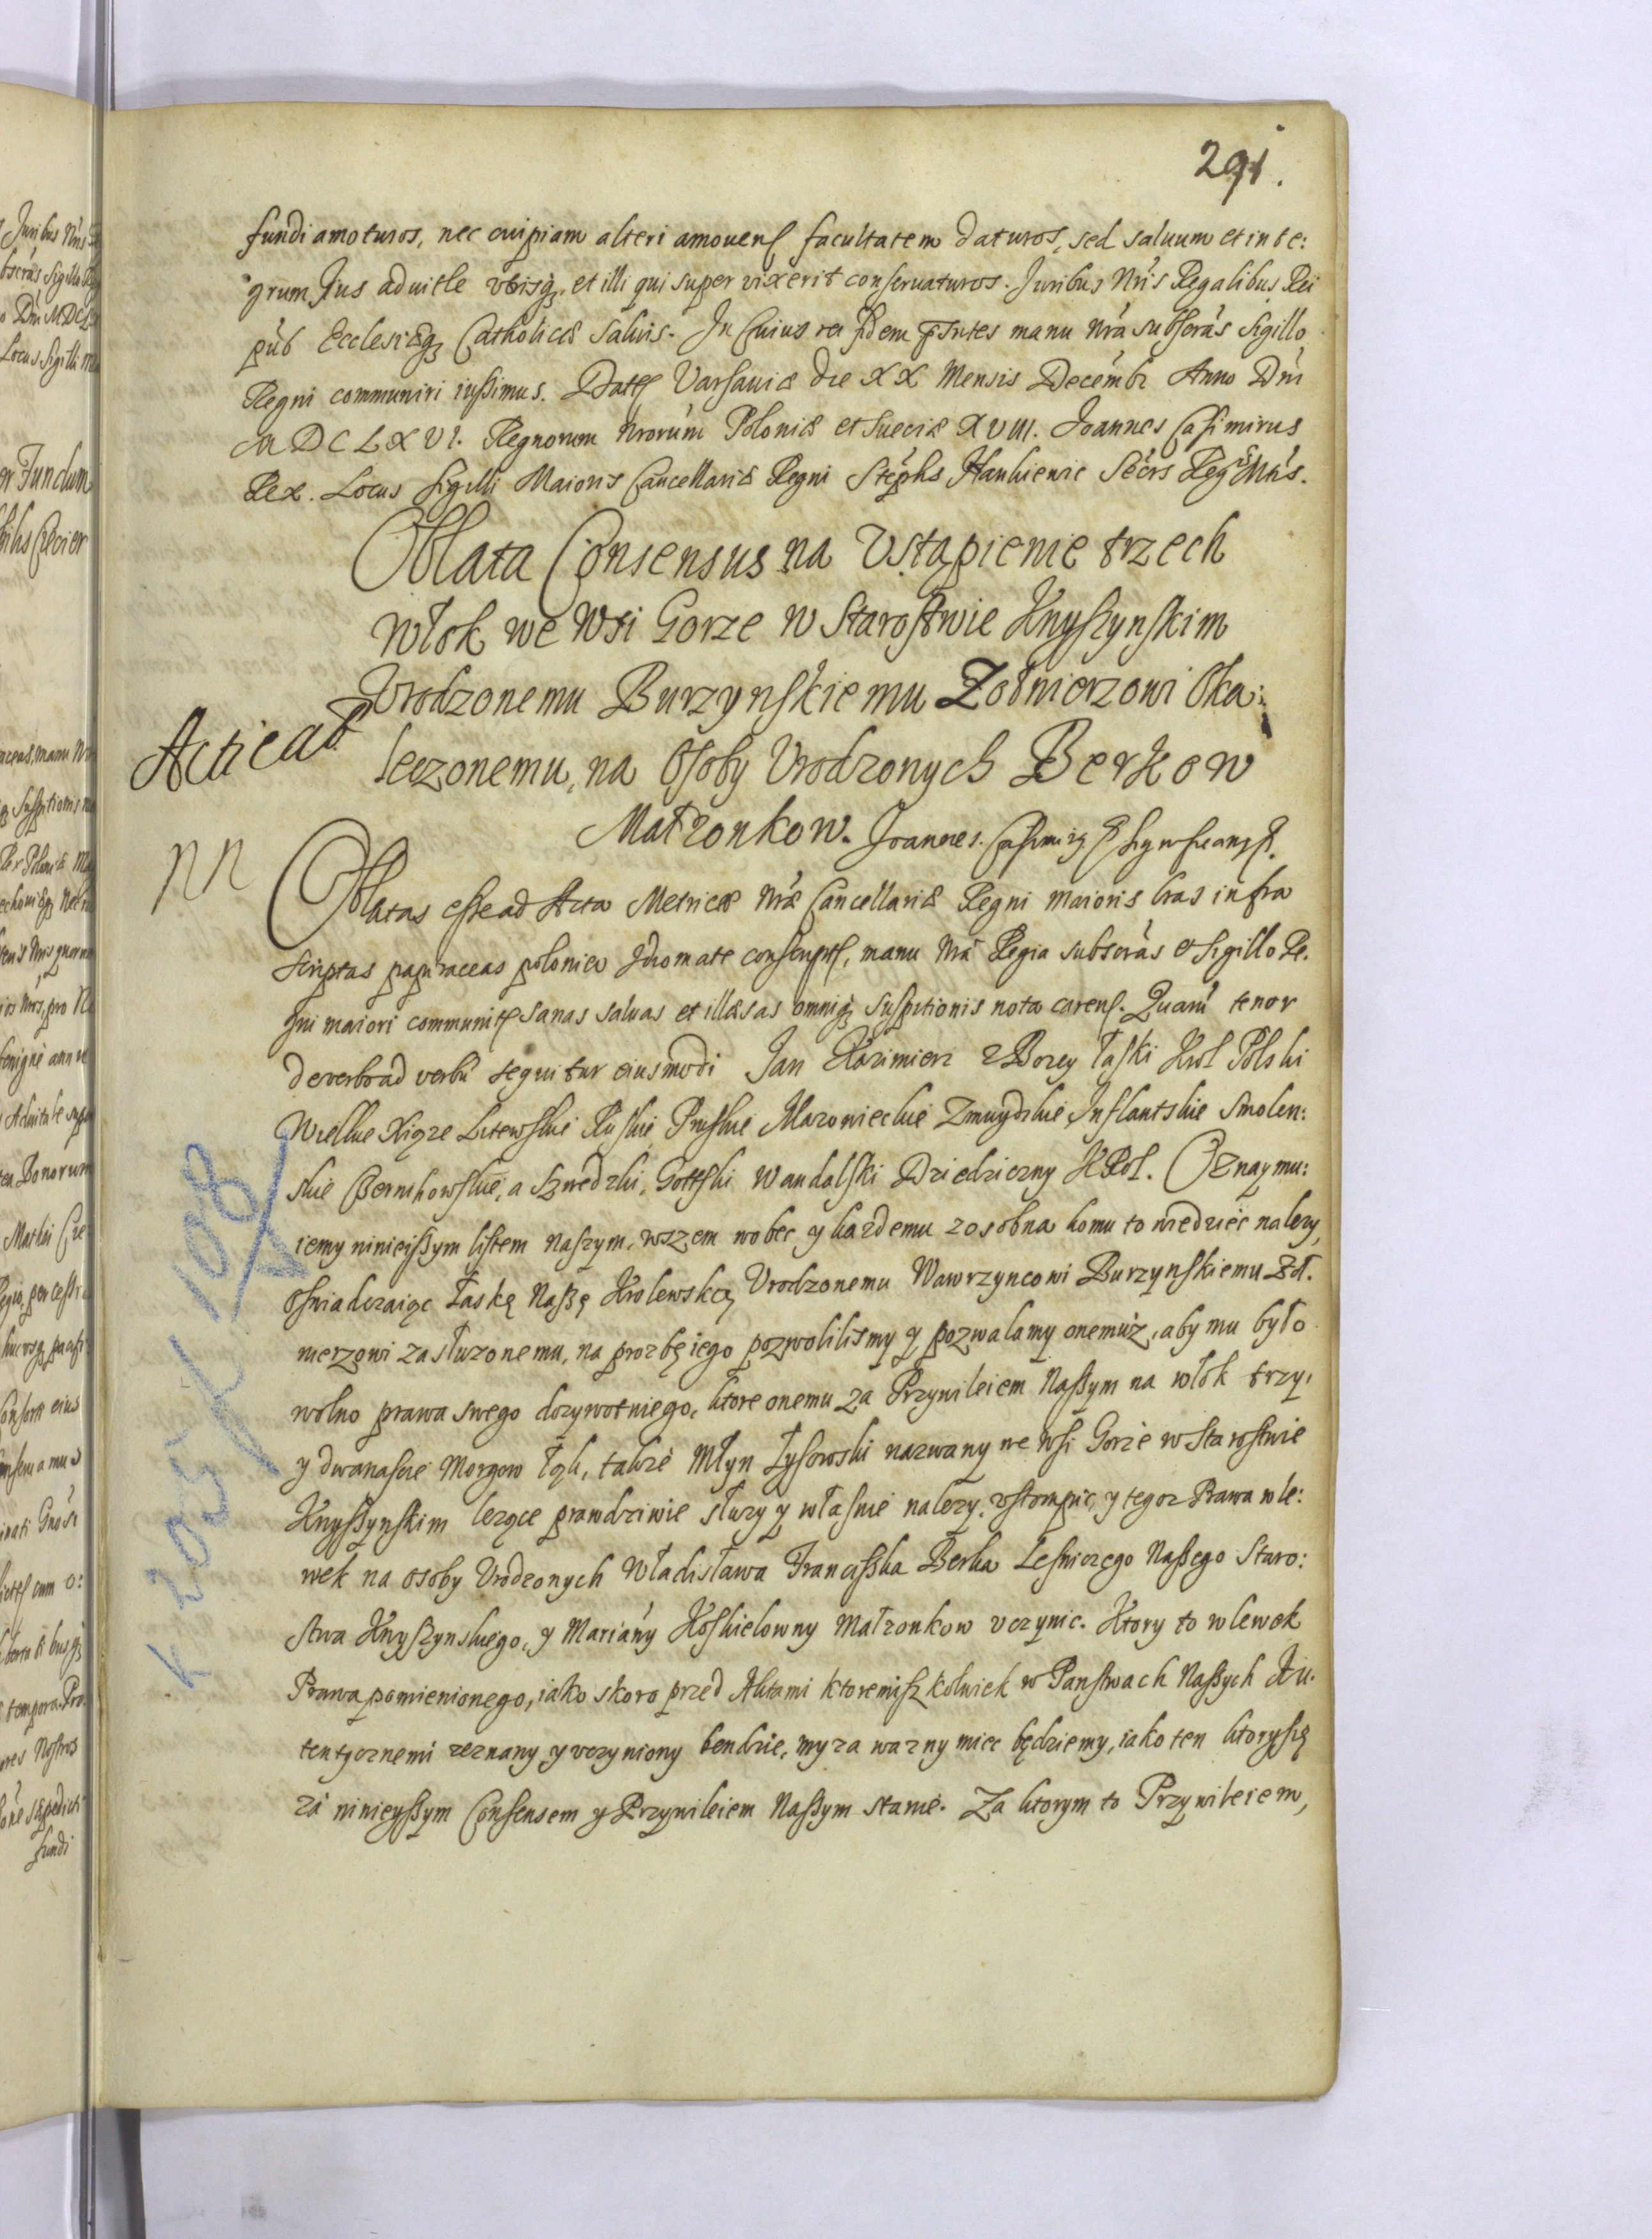 291.
fundi amoturos, nec cuipiam alteri amouen facultatem daturos, sed saluum et inte:
grum Jus aduitle vtrisq, et illi qui super vixerit conseruaturos. Juribus Nris Regalibus Rei
pub Ecclesiæq Catholicæ saluis. In Cuius rei fidem pntes manu nra subscras Sigillo
Regni communiri iussimus. Datt Varsauiæ die XX Mensis Decembr Anno Dni
MDCLXVI. Regnorum Nrorum Poloniæ et Sueciæ XVIII. Joannes Casimirus
Rex. Locus Sigilli Maioris Cancellariæ Regni Stephs Hankiewic Secrs Regis Mtis.
Oblata Consensus na Vstąpienie trzech
włok we wsi Gorze w Starostwie Knyszynskim
Vrodzonemu Burzynskiemu Zołnierzowi Oka:
leczonemu, na Osoby Vrodzonych Berkow
Małzonkow. Joannes Casimirq
Acticat
NN
Oblatas esse ad Acta Metricæ Nræ Cancellariæ Regni maioris lras infra
scriptas papiraceas polonico Idiomate conscript, manu Nra Regia subscras et Sigillo Re.
gni maiori communit sanas saluas et illæsas omniq suspitionis nota caren. Quaru tenor
de verbo ad verbu sequitur eiusmodi Jan Kazimierz z Bozey łaski Krol Polski
Wielkie Xiąze Litewskie Ruskie Pruskie Mazowieckie Zmuydzkie Inflantskie Smolen:
skie Czernihowskie, a Szwedzki, Gottski Wandalski Dziedziczny Krol. Oznaymu:
iemy ninieiszym listem naszym, wszem wobec y kazdemu zosobna komu to wiedziec nalezy,
Oswiadczaiąc łaskę Naszę Krolewską Vrodzonemu Wawrzyncowi Burzynskiemu Zoł.
nierzowi zasłuzonemu, na prozbę iego pozwolilismy y pozwalamy onemuz, aby mu było
wolno prawa swego dozywotniego, ktore onemu za Przywileiem Naszym na włok trzy,
y dwanascie Morgow łąk, takze Młyn Łysowski nazwany we wsi Gorze w Starostwie
Knyszynskim lezące prawdziwie słuzy y własnie nalezy. vstompic, y tegoz Prawa wle:
wek na osoby Vrodzonych Władisława Franciszka Berka Lesniczego Naszego Staro:
stwa Knyszynskiego, y Mariany Koskielowny Małzonkow vczynic. Ktory to wlewek
Prawa pomienionego, iako skoro przed Aktami ktoremiszkolwiek w Panstwach Naszych Au.
tentycznemi zeznany y vczyniony bendzie, my za wazny miec będziemy, iako ten ktory się
za ninieyszym Consensem y Przywileiem Naszym stanie. Za ktorym to Przywileiem,